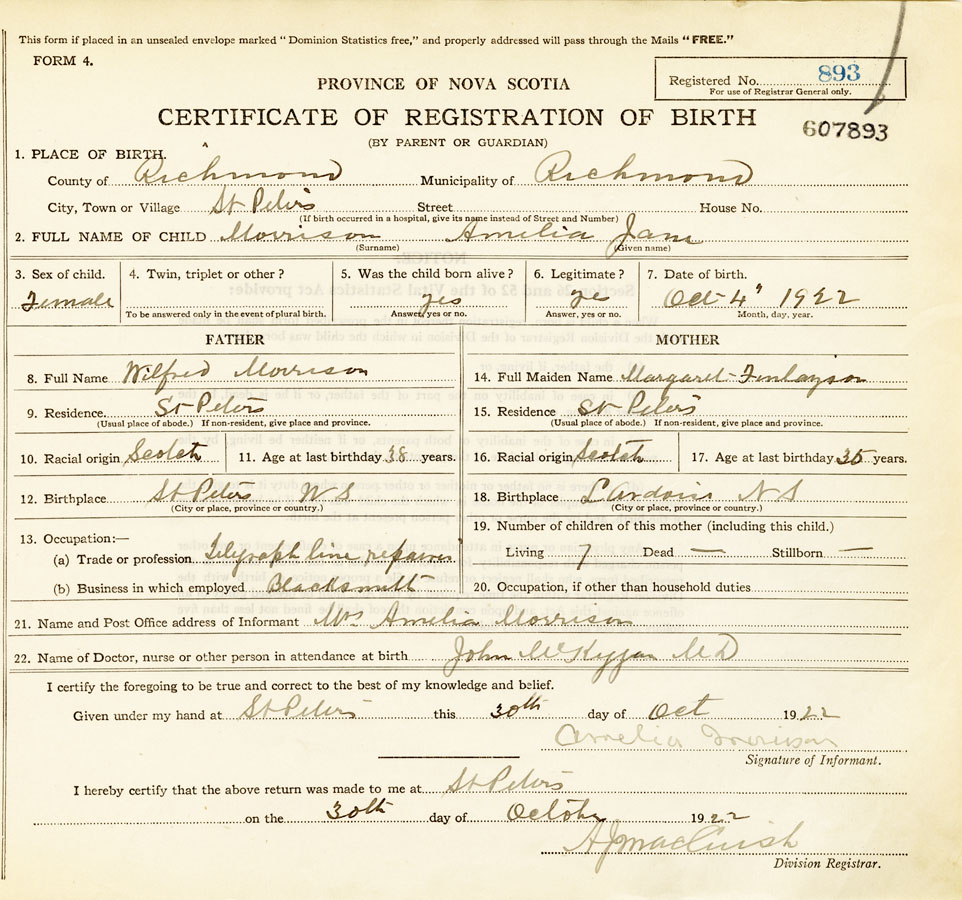 This form if placed in an unsealed envelope marked "Dominion Statistics free," and properly addressed will pass through the Mails "FREE."
FORM 4.
Registered No. 893
For use of Registrar General only.
PROVINCE OF NOVA SCOTIA
CERTIFICATE OF REGISTRATION OF BIRTH
607893
(BY PARENT OR GUARDIAN)
1. PLACE OF BIRTH.
County of Richmond Municipality of Richmond
City, Town or Village St Peters Street House No.
(If birth occurred in a hospital, give its name instead of Street and Number)
2. FULL NAME OF CHILD Morrison Amelia Jane
(Surname) (Given name)
3. Sex of child. 4. Twin, triplet or other? 5. Was the child born alive? 6. Legitimate? 7. Date of birth.
Female yes yes Oct 4" 1922
To be answered only in the event of plural birth. Answer, yes or no. Answer, yes or no. Month, day, year.
FATHER MOTHER
8. Full Name Wilfred Morrison 14. Full Maiden Name Margaret Finlayson
9. Residence St Peters 15. Residence St Peters
(Usual place of abode.) If non-resident, give place and province. (Usual place of abode.) If non-resident, give place and province.
10. Racial origin Scotch 11. Age at last birthday 38 years. 16. Racial origin Scotch 17. Age at last birthday 35 years.
12. Birthplace St Peters N S 18. Birthplace L'Ardoise N S
(City or place, province or country.) (City or place, province or country.)
13. Occupation:— 19. Number of children of this mother (including this child.)
(a) Trade or profession Telegraph line repairer Living 7 Dead — Stillborn —
(b) Business in which employed Blacksmith 20. Occupation, if other than household duties
21. Name and Post Office address of Informant Mrs Amelia Morrison
22. Name of Doctor, nurse or other person in attendance at birth John McK M D
I certify the foregoing to be true and correct to the best of my knowledge and belief.
Given under my hand at St Peters this 30th day of Oct 1922
Amelia Morrison
Signature of Informant.
I hereby certify that the above return was made to me at St Peters
on the 30th day of October 1922
A J MacCuish
Division Registrar.